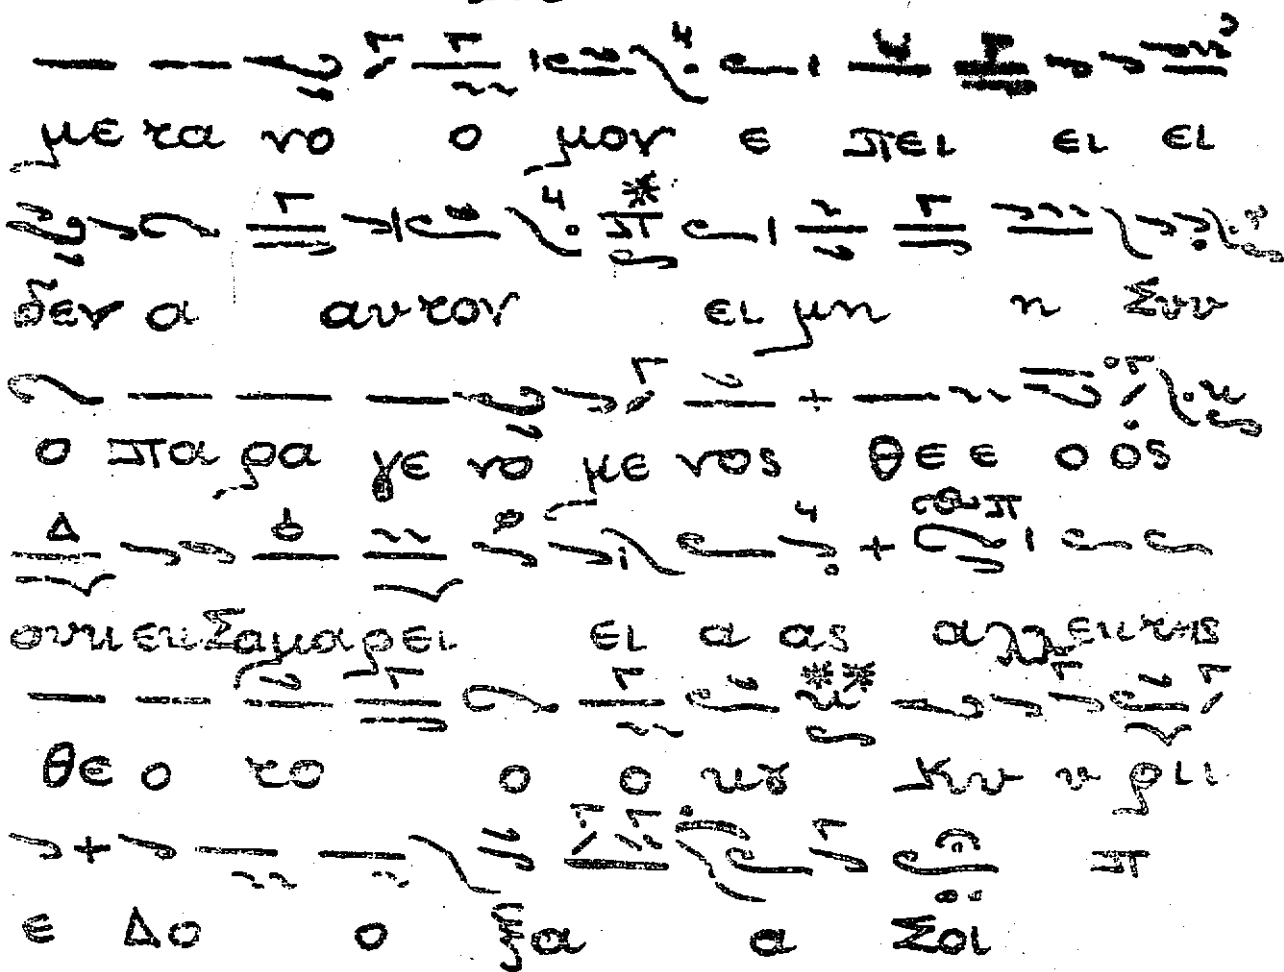 με τα νο ο μον ε πει ει ει
δεν α αυτον ει μη η Συν
ο πα ρα γε νο με νος θε ε ο ος
ουκ εκ Σαμαρει ει α ας αλλ εκ της
θε ο το ο ο κȣ Κυ υ ρι ι
ε Δο ο ξα α Σοι